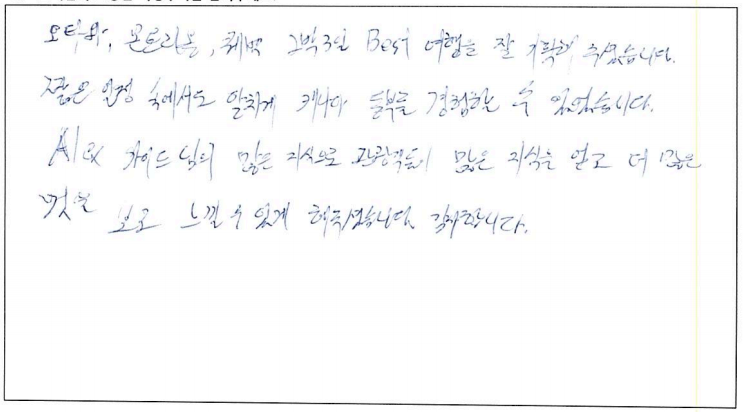 오타와, 몬트리올, 퀘벡 2박3일 Best 여행을 잘 기획해 주셨습니다.
짧은 일정 속에서도 알차게 캐나다 동부를 경험할 수 있었습니다.
Alex 가이드님의 많은 지식으로 관광객들이 많은 지식을 얻고 더 많은
것을 보고 느낄 수 있게 해주셨습니다. 감사합니다.